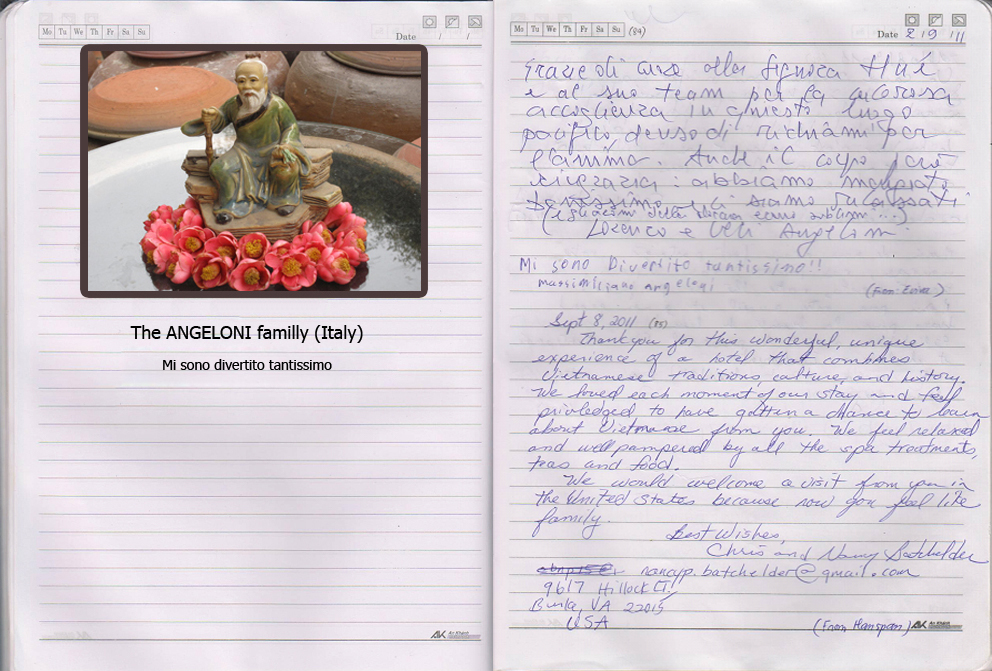 Mo Tu We Th Fr Sa Su
Date / /
The ANGELONI familly (Italy)
Mi sono divertito tantissimo
AK An Khánh
Mo Tu We Th Fr Sa Su (84)
Date 2 9 '11
Grazie di cuore alla Signora Huê
e al suo team per la calorosa
accoglienza in questo luogo
pacifico denso di richiami per
l'anima. Anche il corpo può
ringraziare: abbiamo mangiato
benissimo e ci siamo rilassati
(e i massaggi della
Lorenzo e Angeloni
Mi sono Divertito tantissimo!!
Massimiliano Angeloni
(From )
Sept 8, 2011 (85)
Thank you for this wonderful, unique
experience of a hotel that combines
Vietnamese traditions, culture, and history.
We loved each moment of our stay and feel
priviledged to have gotten a chance to learn
about Vietnamse from you. We feel relaxed
and well pampered by all the spa treatments,
teas and food.
We would welcome a visit from you in
the United States because now you feel like
family.
Best Wishes,
Chris and Nancy Batchelder
nancyp.batchelder@gmail.com
9617 Hillock Ct.
Burke, VA 22015
USA
(From Hanspan)
AK An Khánh